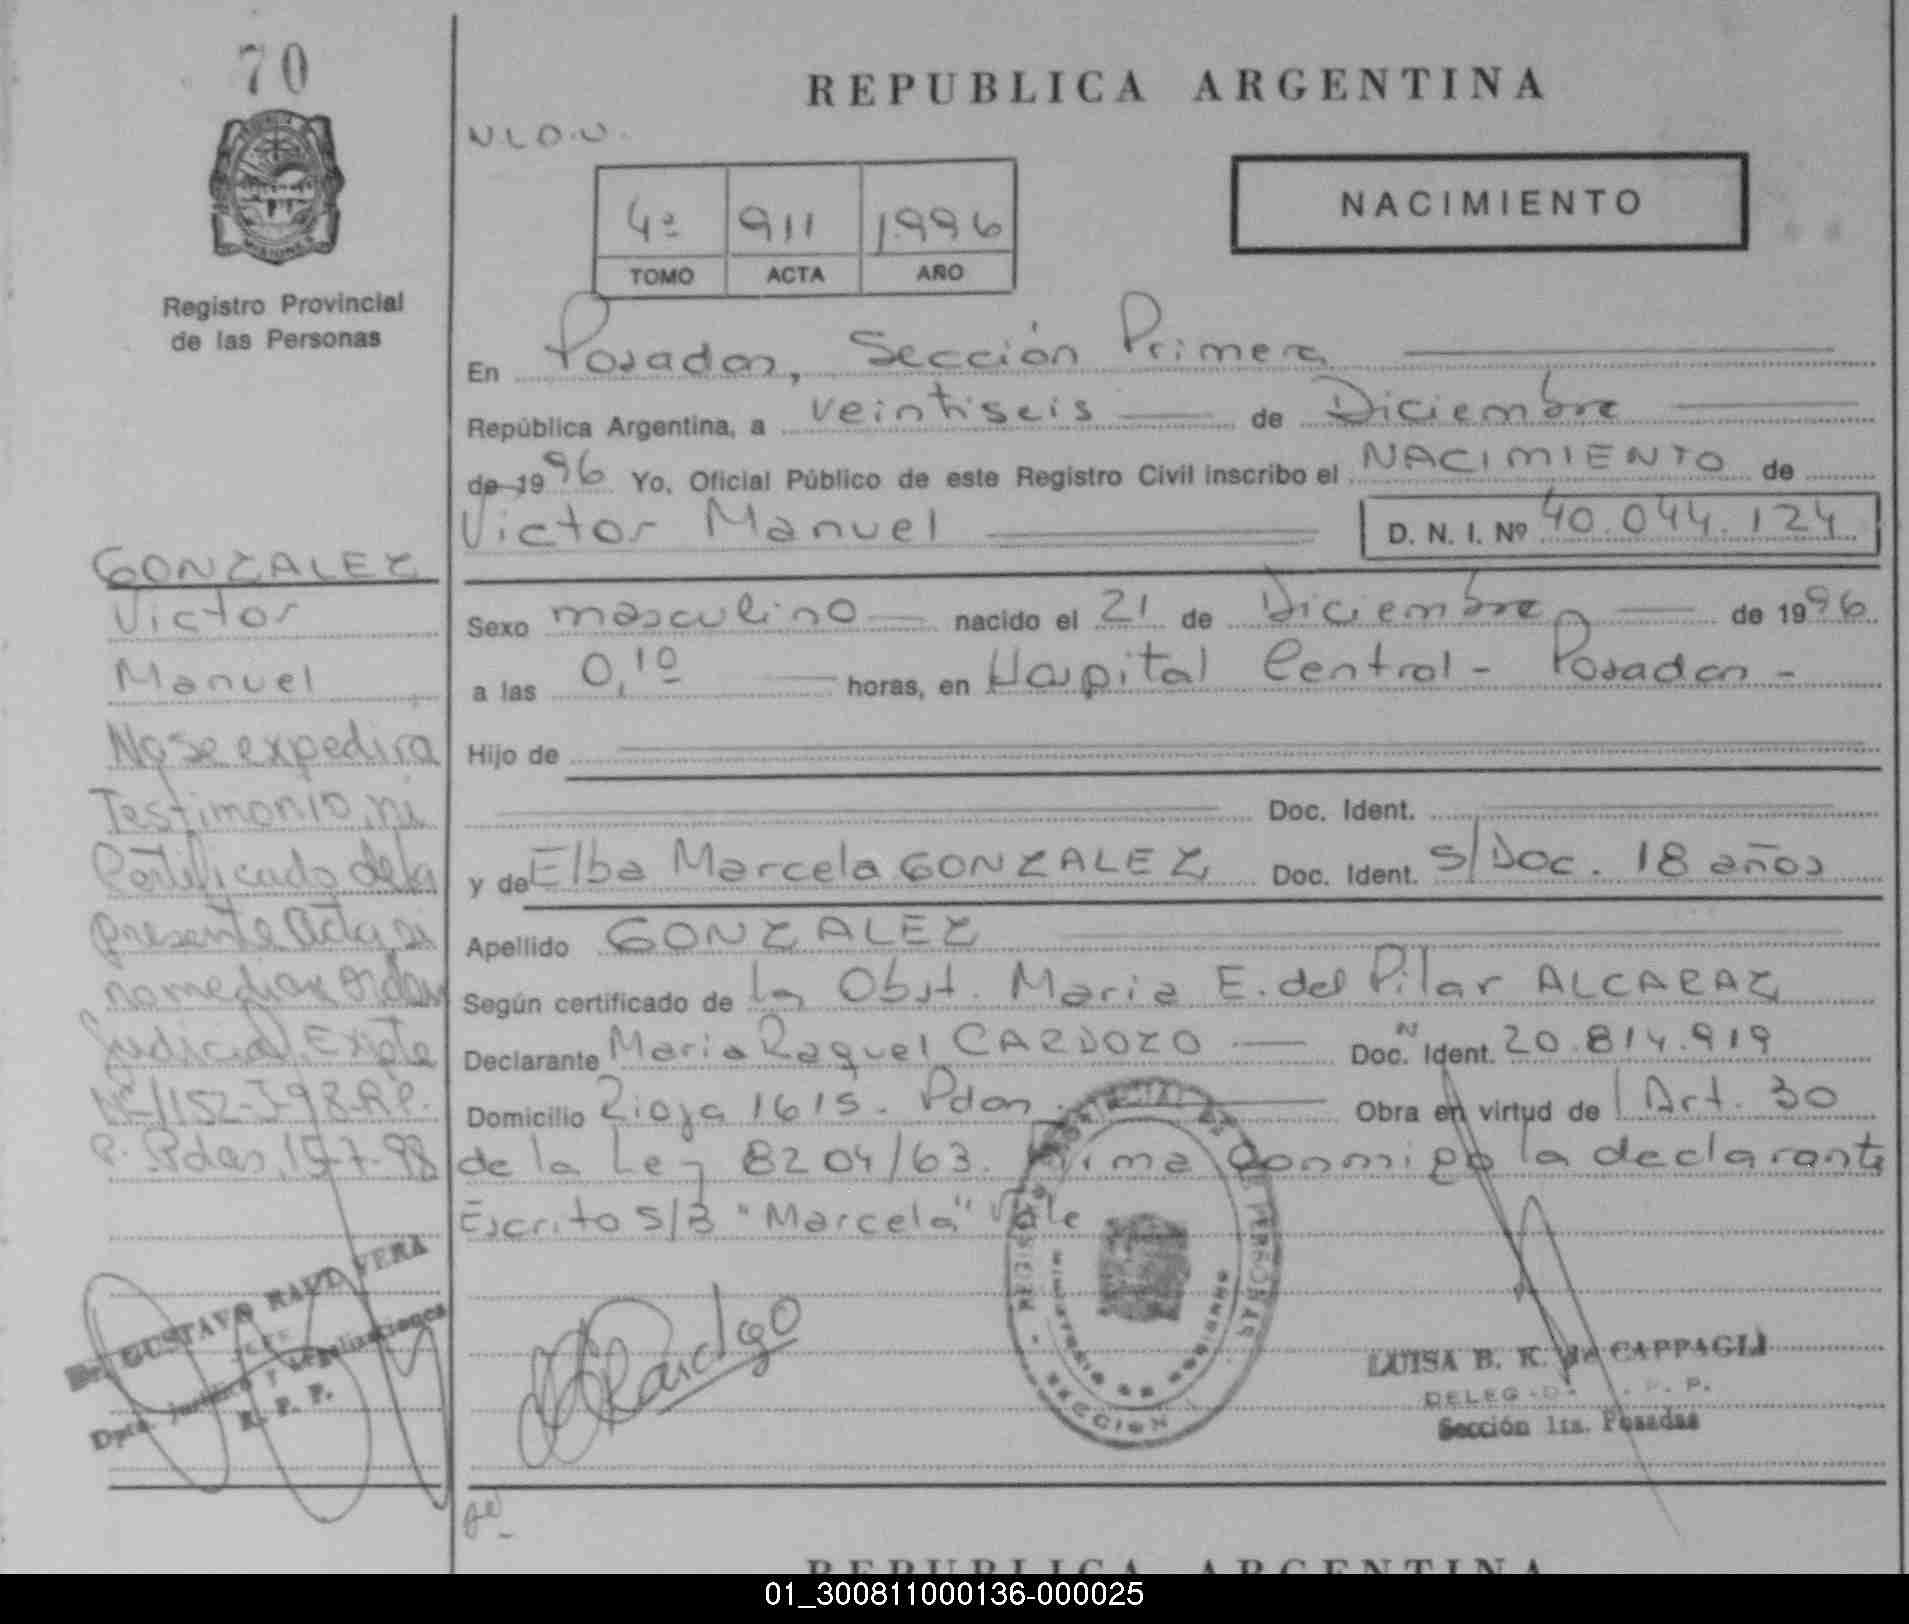 70
REPUBLICA ARGENTINA
NACIMIENTO
4ª 911 1.996
TOMO ACTA AÑO
Registro Provincial
de las Personas
En Posadas, Sección Primera
República Argentina, a veintiseis de Diciembre
de 1996 Yo, Oficial Público de este Registro Civil inscribo el NACIMIENTO de
Victor Manuel D. N. I. Nº 40.044.124
GONZALEZ
Victor
Manuel
No se expedira
Testimonio, ni
Certificado de la
presente Acta, si
no mediar orden
Judicial. Existe
Nº 1152-J-98-R.P.
P. Pdas, 15-7-98
Sexo masculino nacido el 21 de Diciembre de 1996.
a las 0,10 horas, en Hospital Central - Posadas -
Hijo de
Doc. Ident.
y de Elba Marcela GONZALEZ Doc. Ident. S/Doc. 18 años
Apellido GONZALEZ
Según certificado de la Obst. Maria E. del Pilar ALCARAZ
Declarante Maria Raquel CARDOZO Doc. N Ident. 20.814.919
Domicilio Rioja 1615. Pdas. Obra en virtud del Art. 30
de la Ley 8204/63. Firma conmigo la declarante
Escrito S/B "Marcela" Vale
Dr. GUSTAVO RAUL VERA
JEFE
Dpto. Jurídico y Legalizaciones
R. P. P.
SECCION 1
LUISA B. K. de CAPPAGLI
DELEG. R. P. P.
Sección 1ra. Posadas
REPUBLICA ARGENTINA
01_300811000136-000025